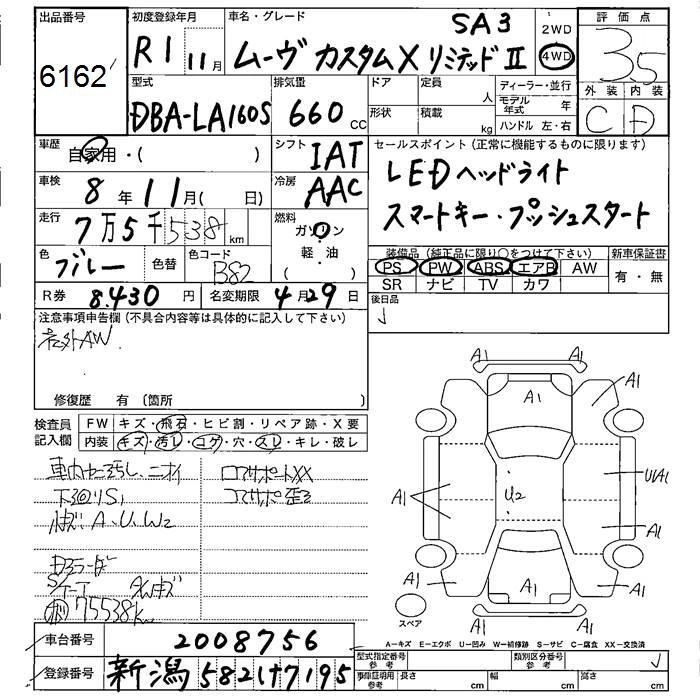 出品番号
6162
初度登録年月
R1 11月
車名・グレード
SA3
ムーヴ カスタムX リミテッドⅡ
2WD
4WD
評価点
3.5
外装 内装
C D
型式
DBA-LA160S
排気量
660 CC
ドア
定員
人
形状
積載
kg
ディーラー・並行
モデル年式
年
ハンドル 左・右
車歴
自家用・( )
シフト
IAT
セールスポイント(正常に機能するものに限ります)
LEDヘッドライト
スマートキー・プッシュスタート
車検
8年11月( 日)
冷房
AAC
走行
7万5千538km
燃料
ガソリン
軽・油
色
ブルー
色替
色コード
B82
装備品(純正品に限り○をつけて下さい)
PS PW ABS エアB AW
SR ナビ TV カワ
新車保証書
有・無
R券
8.430円
名変期限
4月29日
後日品
注意事項申告欄(不具合内容等は具体的に記入して下さい)
社外AW
修復歴 有(箇所 )
検査員記入欄
FW キズ・飛石・ヒビ割・リペア跡・X要
内装 キズ・汚レ・コゲ・穴・スレ・キレ・破レ
下回りS1
A、U、W2
75538k
コアサポートXX
コアサポ歪
A1 A1
A1
A1
A1
U2
U1A1
A1
A1
A1
A1
スペア
A-キズ E-エクボ U-凹み W-補修跡 S-サビ C-腐食 XX-交換済
車台番号
2008756
登録番号
新潟582け7195
型式指定番号
参考
類別区分番号
参考
車庫証明用
参考
長さ cm
幅 cm
高さ cm